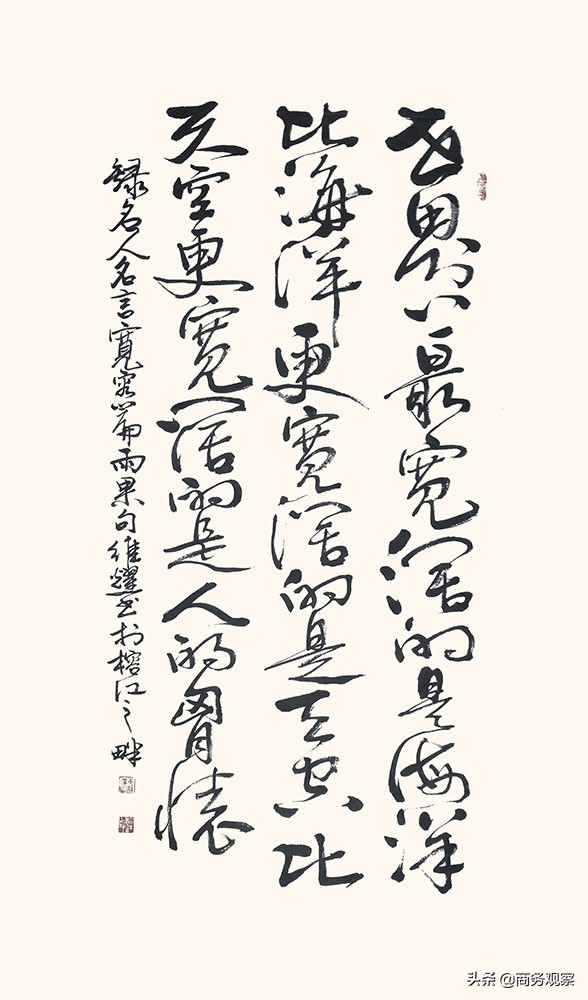 世界上最寬阔的是海洋
比海洋更寬阔的是天空比
天空更寬阔的是人的胷懷
録名人名言寬容篇雨果句維耀书於榕江之畔
头条 @商务观察